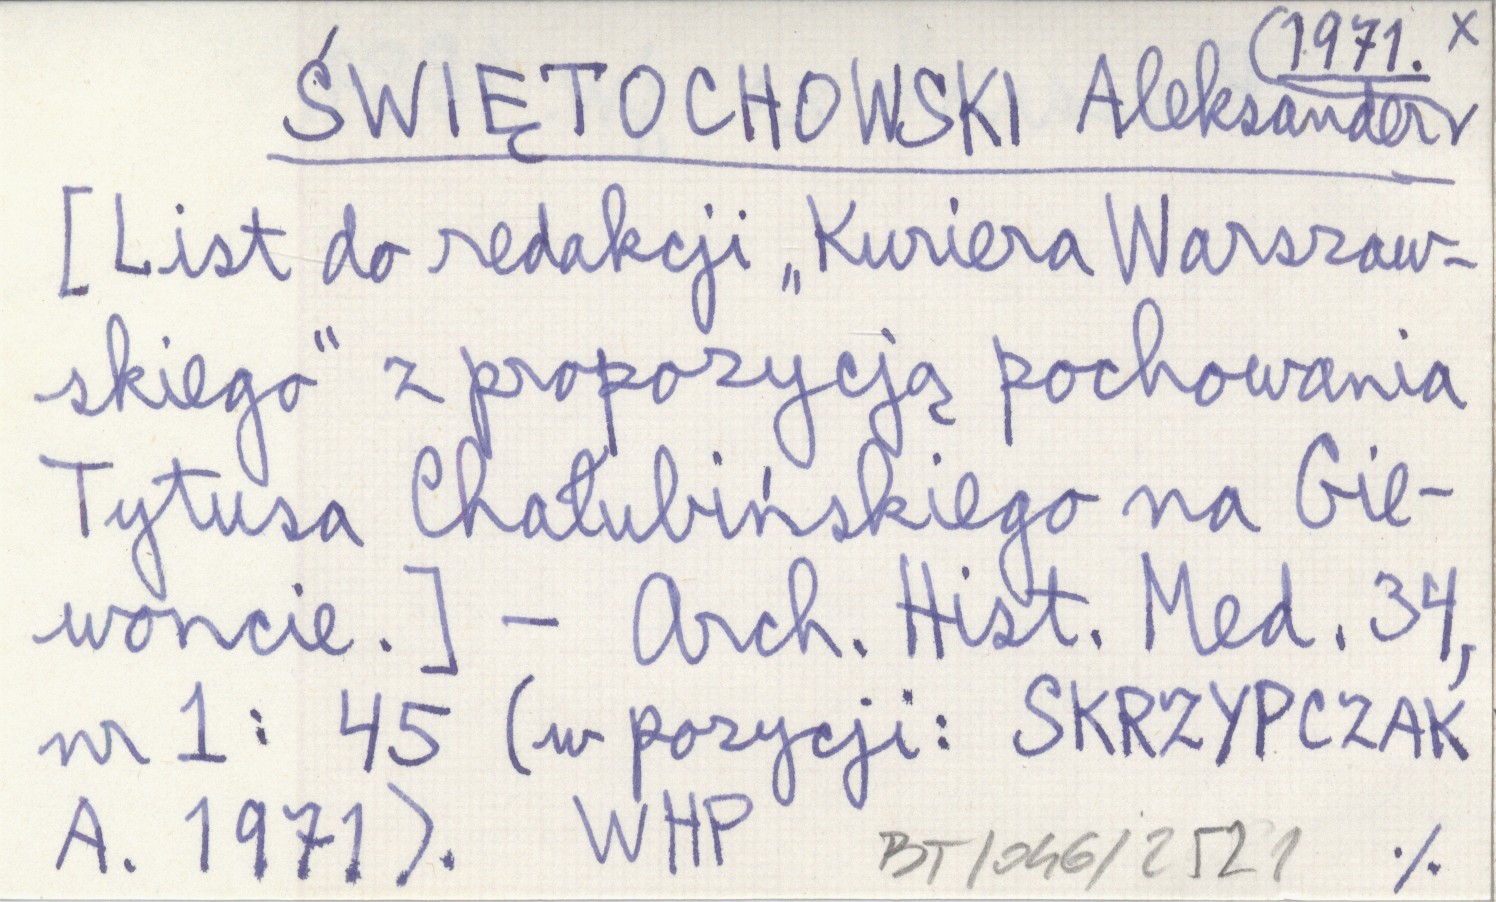 (1971. x
ŚWIĘTOCHOWSKI Aleksander
[List do redakcji „Kuriera Warszaw-
skiego" z propozycją pochowania
Tytusa Chałubińskiego na Gie-
woncie.] – Arch. Hist. Med. 34,
nr 1: 45 (w pozycji: SKRZYPCZAK
A. 1971). WHP
BT/046/2521 ./.